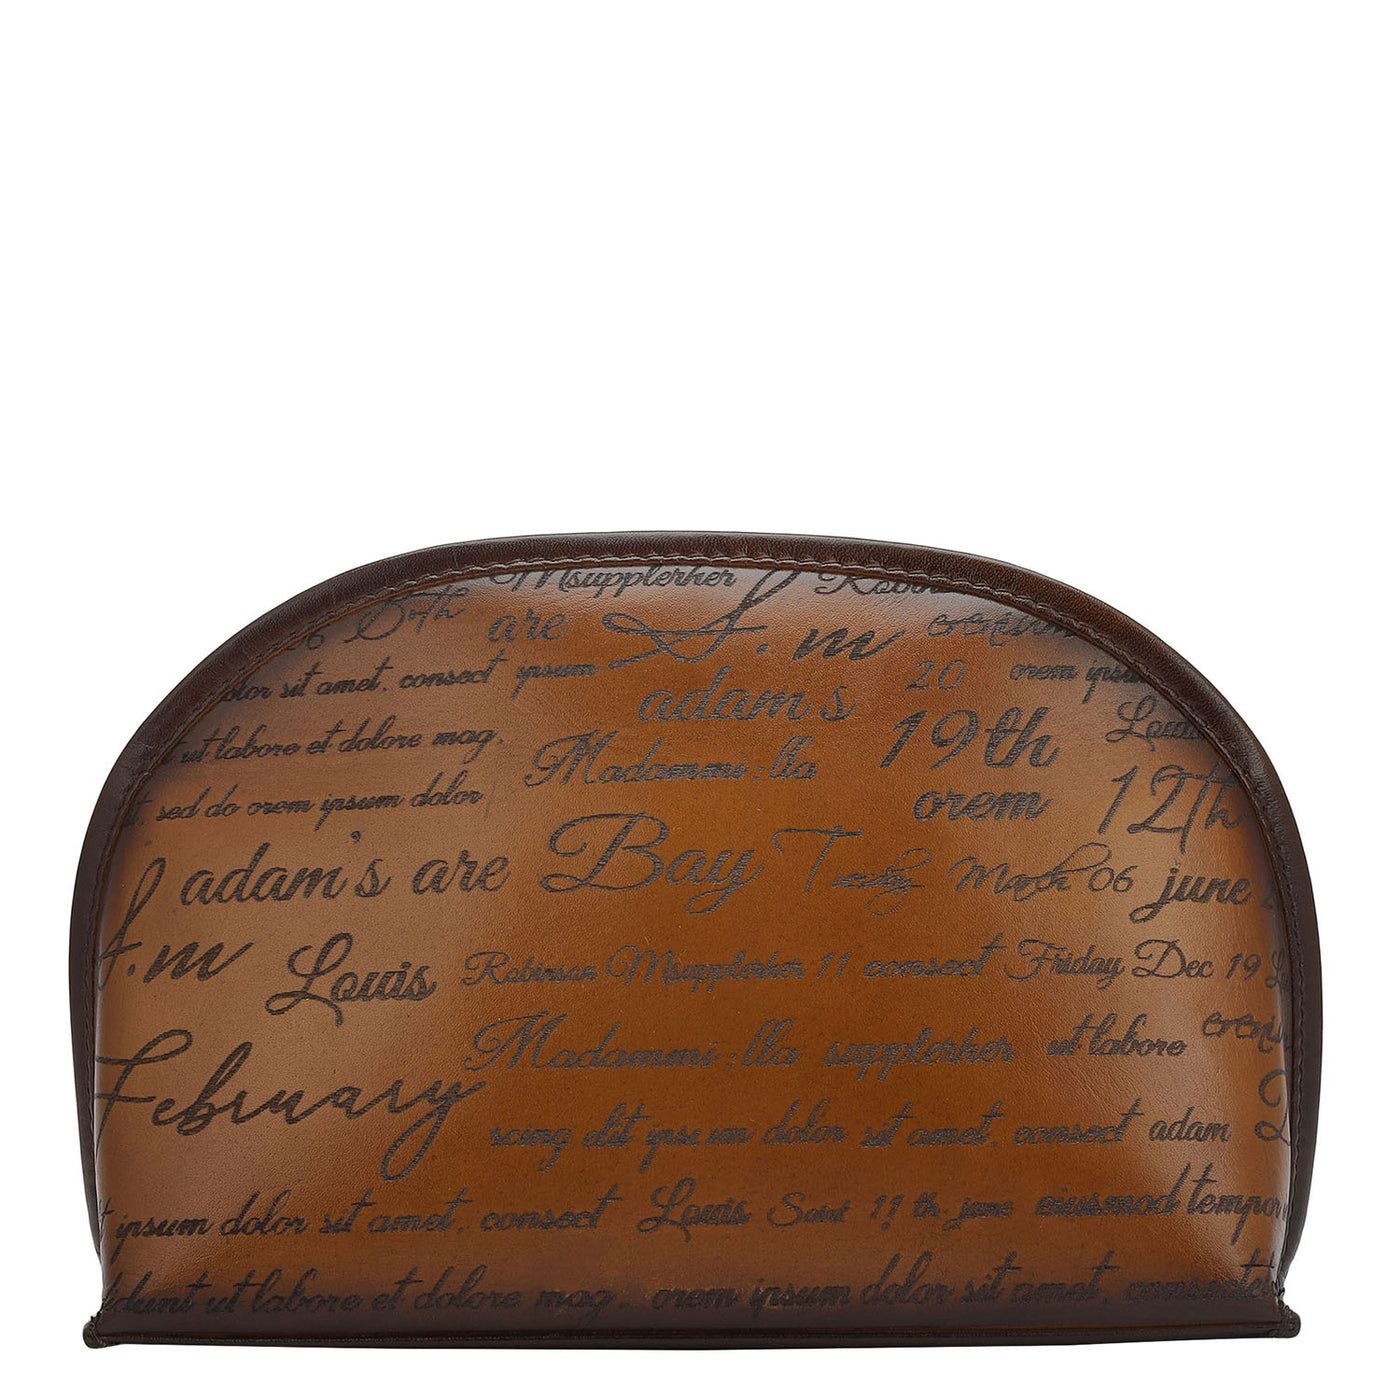 Msupplerher
are S.m
dolor sit amet. consect ipsum 20 orem ipsum
adam's
ut labore et dolore mag. 19th Louis
Madammi:lla
sed do orem ipsum dolor orem 12th
adam's are Bay Tuesday March 06 june
S.m Louis Robinson Msupplerher 11 consect Friday Dec 19
Madammi:lla supplerher ut labore
February
scing elit ipsum dolor sit amet. consect adam
ipsum dolor sit amet. consect Louis Saint 11 th june eiusmod tempor
ut labore et dolore mag. orem ipsum dolor sit amet.